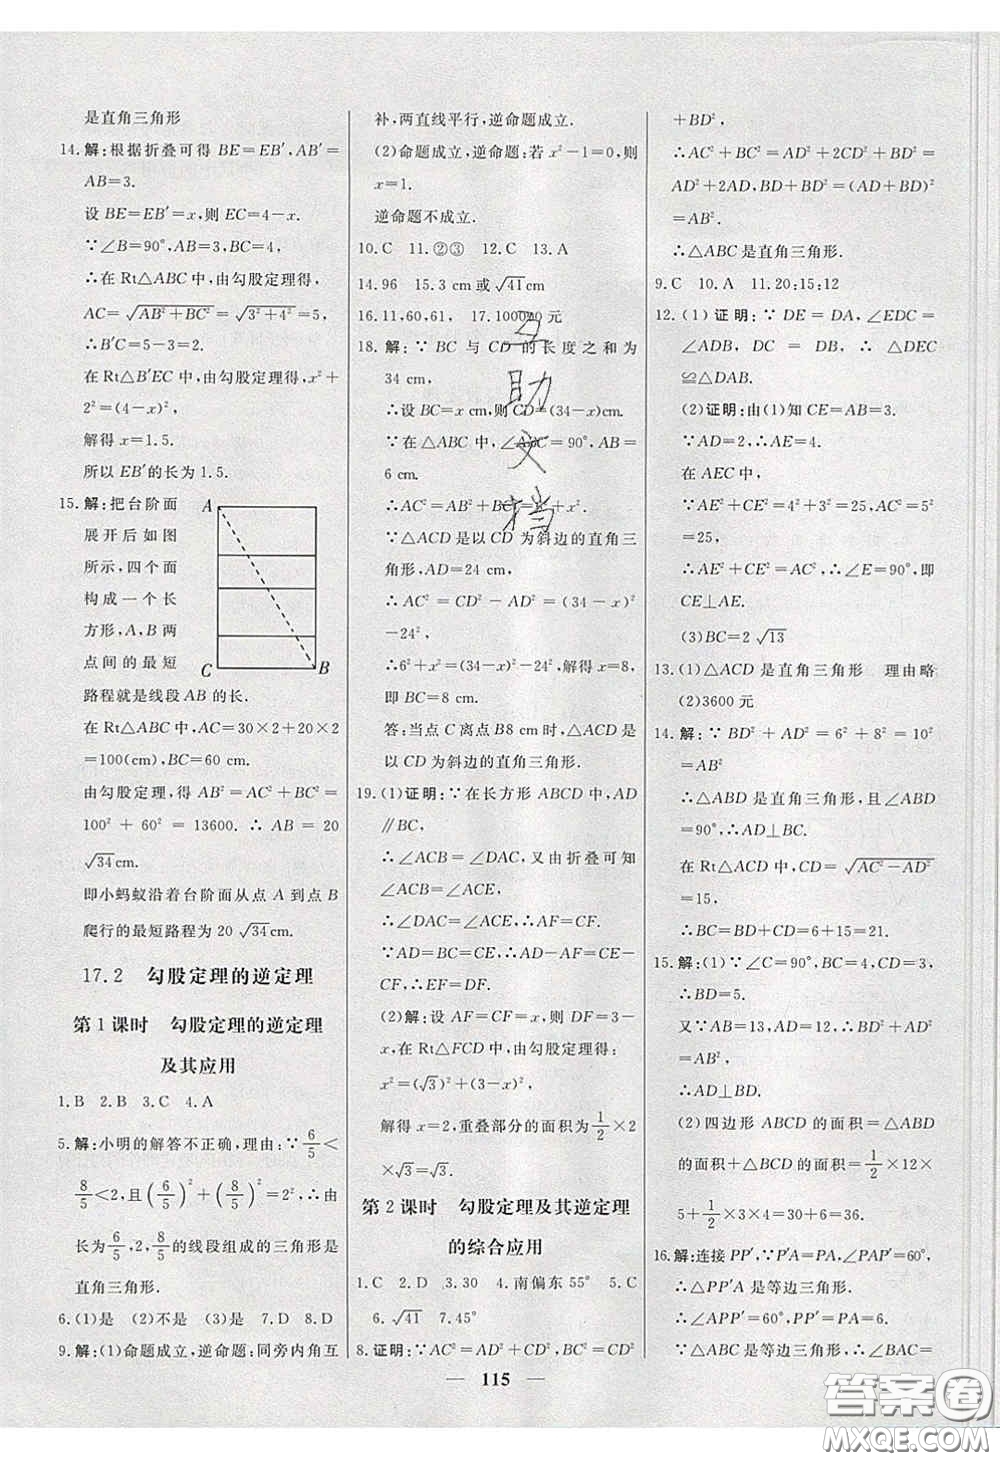 是直角三角形
14.解:根据折叠可得 BE=EB′,AB′=
AB=3.
设 BE=EB′=x,则 EC=4-x.
∵∠B=90°,AB=3,BC=4,
∴在 Rt△ABC 中,由勾股定理得,
AC=√(AB²+BC²)=√(3²+4²)=5,
∴B′C=5-3=2.
在 Rt△B′EC 中,由勾股定理得,x²+
2²=(4-x)²,
解得 x=1.5.
所以 EB′的长为 1.5.
15.解:把台阶面
展开后如图
所示,四个面
构成一个长
方形,A,B 两
点间的最短
路程就是线段 AB 的长.
A
C
B
在 Rt△ABC 中,AC=30×2+20×2
=100(cm),BC=60 cm.
由勾股定理,得 AB²=AC²+BC²=
100²+60²=13600. ∴AB=20
√34cm.
即小蚂蚁沿着台阶面从点 A 到点 B
爬行的最短路程为 20 √34cm.
17.2 勾股定理的逆定理
第 1 课时 勾股定理的逆定理
及其应用
1.B 2.B 3.C 4.A
5.解:小明的解答不正确,理由:∵6/5<
8/5<2,且(6/5)²+(8/5)²=2²,∴以
长为6/5,2,8/5的线段组成的三角形是
直角三角形.
6.(1)是 (2)不是 (3)是 7.D 8.D
9.解:(1)命题成立,逆命题:同旁内角互
补,两直线平行,逆命题成立.
(2)命题成立,逆命题:若 x²-1=0,则
x=1.
逆命题不成立.
10.C 11.②③ 12.C 13.A
14.96 15.3 cm或√41cm
16.11,60,61, 17.100020元
18.解:∵BC 与 CD 的长度之和为
34 cm,
∴设 BC=x cm,则 CD=(34-x)cm.
∵在△ABC 中,∠ABC=90°,AB=
6 cm.
∴AC²=AB²+BC²=6²+x².
∵△ACD 是以 CD 为斜边的直角三
角形,AD=24 cm,
∴AC²=CD²-AD²=(34-x)²
-24²,
∴6²+x²=(34-x)²-24²,解得 x=8,
即 BC=8 cm.
答:当点 C 离点 B8 cm 时,△ACD 是
以 CD 为斜边的直角三角形.
19.(1)证明:∵在长方形 ABCD 中,AD
∥BC,
∴∠ACB=∠DAC,又由折叠可知
∠ACB=∠ACE,
∴∠DAC=∠ACE,∴AF=CF.
∵AD=BC=CE,∴AD-AF=CE-CF.
即 DF=EF.
(2)解:设 AF=CF=x,则 DF=3-
x,在 Rt△FCD 中,由勾股定理得:
x²=(√3)²+(3-x)²,
解得 x=2,重叠部分的面积为1/2×2
×√3=√3.
第 2 课时 勾股定理及其逆定理
的综合应用
1.C 2.D 3.30 4.南偏东 55° 5.C
6.√41 7.45°
8.证明:∵AC²=AD²+CD²,BC²=CD²
+BD²,
∴AC²+BC²=AD²+2CD²+BD²
=AD²+2AD·BD+BD²=(AD+BD)²
=AB².
∴△ABC是直角三角形.
9.C 10.A 11.20:15:12
12.(1)证明:∵DE=DA,∠EDC=
∠ADB,DC=DB,∴△DEC
≌△DAB.
(2)证明:由(1)知 CE=AB=3.
∵AD=2,∴AE=4.
在 AEC 中,
∵AE²+CE²=4²+3²=25,AC²=5²
=25,
∴AE²+CE²=AC²,∴∠E=90°,即
CE⊥AE.
(3)BC=2√13
13.(1)△ACD是直角三角形 理由略
(2)3600元
14.解:∵BD²+AD²=6²+8²=10²
=AB²
∴△ABD 是直角三角形,且∠ABD
=90°,∴AD⊥BC.
在 Rt△ACD 中,CD=√(AC²-AD²)
=15,
∴BC=BD+CD=6+15=21.
15.解:(1)∵∠C=90°,BC=CD=3,
∴BD²=BC²+CD²=3²+3²=18.
又∵AB=12,AD=...
=AB²,
∴AD⊥BD.
(2)四边形 ABCD 的面积=△ABD
的面积+△BCD 的面积=1/2×12×
5+1/2×3×4=30+6=36.
16.解:连接 PP′,∵P′A=PA,∠PAP′=60°,
∴△PP′A 是等边三角形,
∴∠APP′=60°,PP′=PA=6,
∵△ABC 是等边三角形,
115
互助文档
答案圈
MXQE.COM